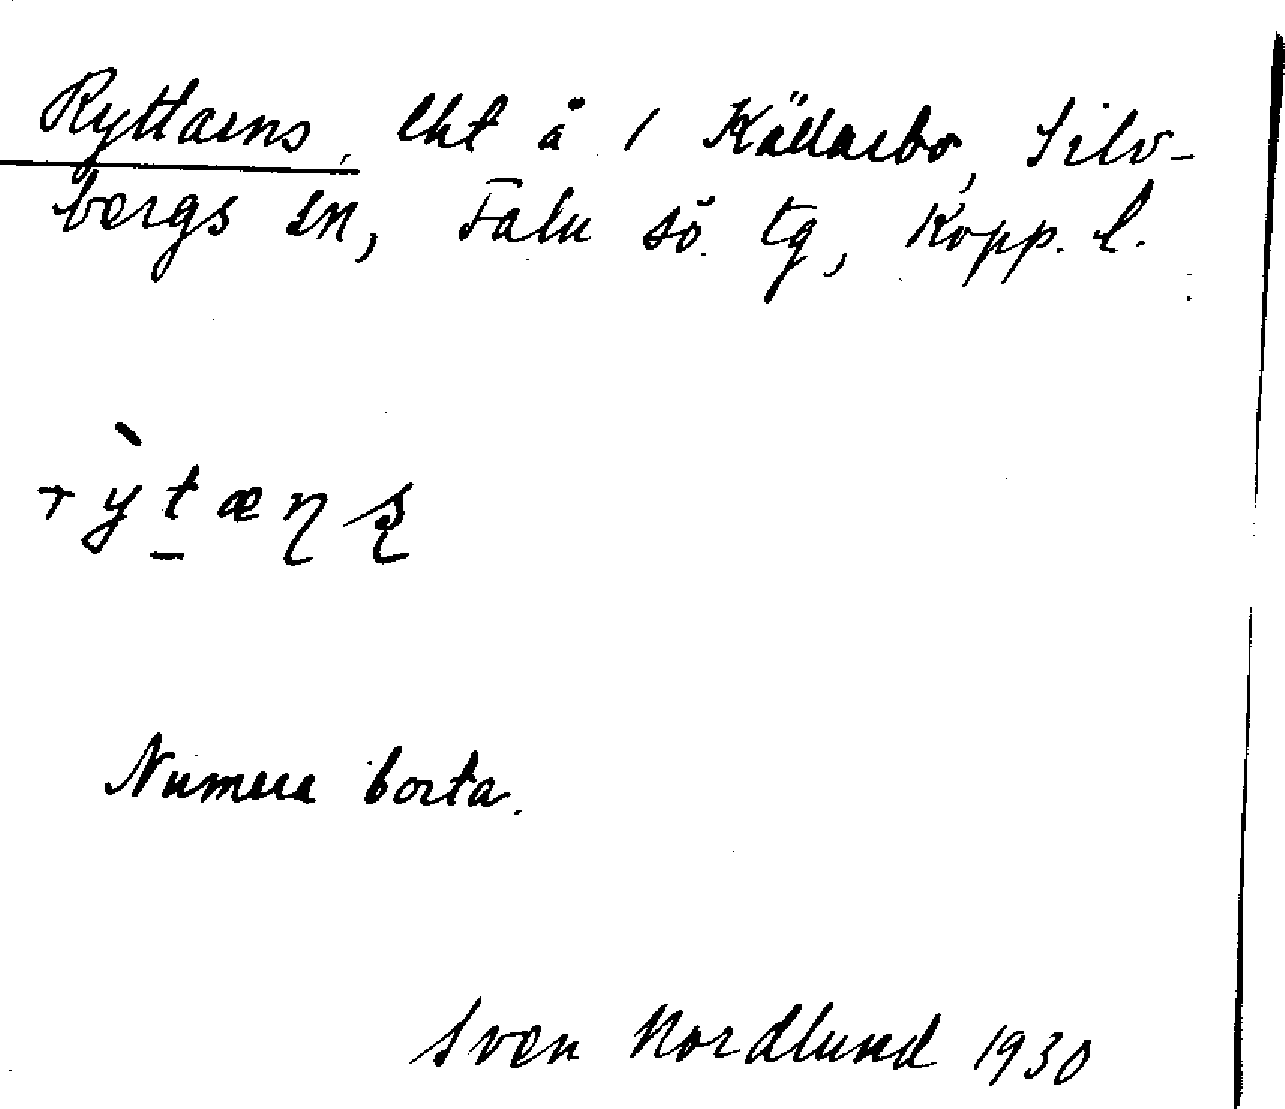 Ryttarns, lht å 1 Källarbo, Silv-
bergs sn, Falu sö. tg, Kopp. l.
rỳt̠æɳʂ
Numera borta.
Sven Nordlund 1930